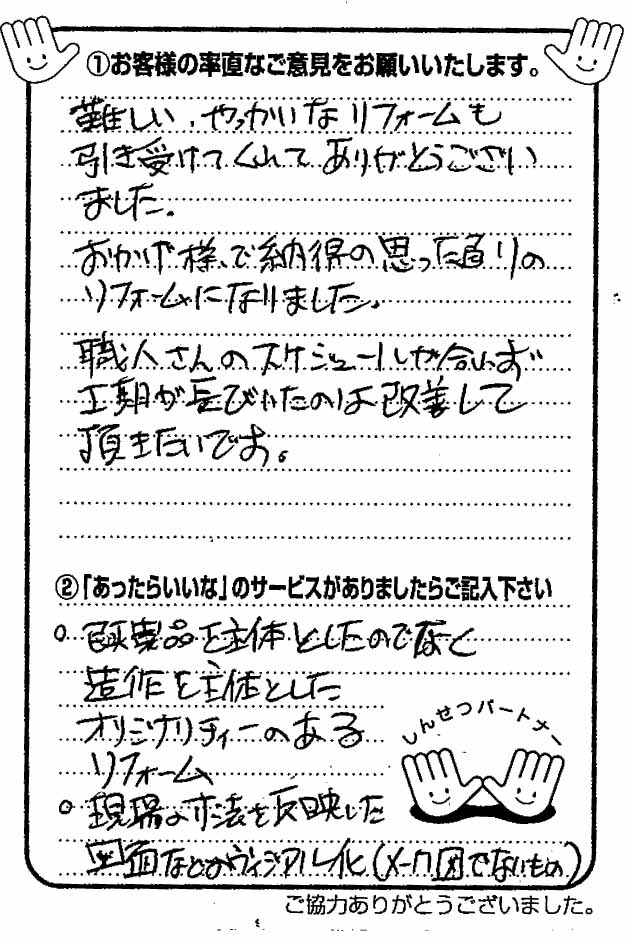 ①お客様の率直なご意見をお願いいたします。
難しい、やっかいなリフォームも
引き受けてくれてありがとうござい
ました。
おかげ様で納得の思った通りの
リフォームになりました。
職人さんのスケジュールが合わず
工期が長びいたのは改善して
頂きたいです。
②「あったらいいな」のサービスがありましたらご記入下さい
○ 既製品を主体としたのでなく
造作を主体とした
オリジナリティーのある
リフォーム
○ 現場の寸法を反映した
図面などのヴィジアル化(メーカ図でないもの)
しんせつパートナー
ご協力ありがとうございました。